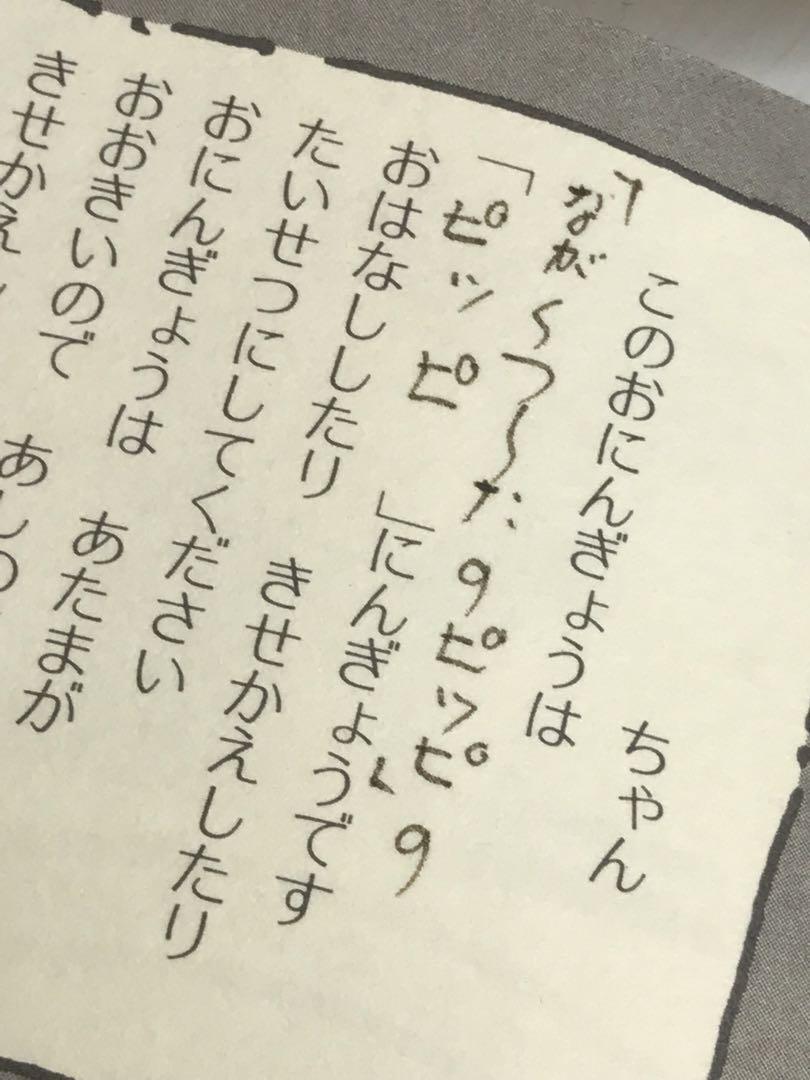 ちゃん
このおにんぎょうは
「ながくつしたのピッピ」の
「ピッピ」にんぎょうです
おはなししたり きせかえしたり
たいせつにしてください
おにんぎょうは あたまが
おおきいので あし
きせかえ